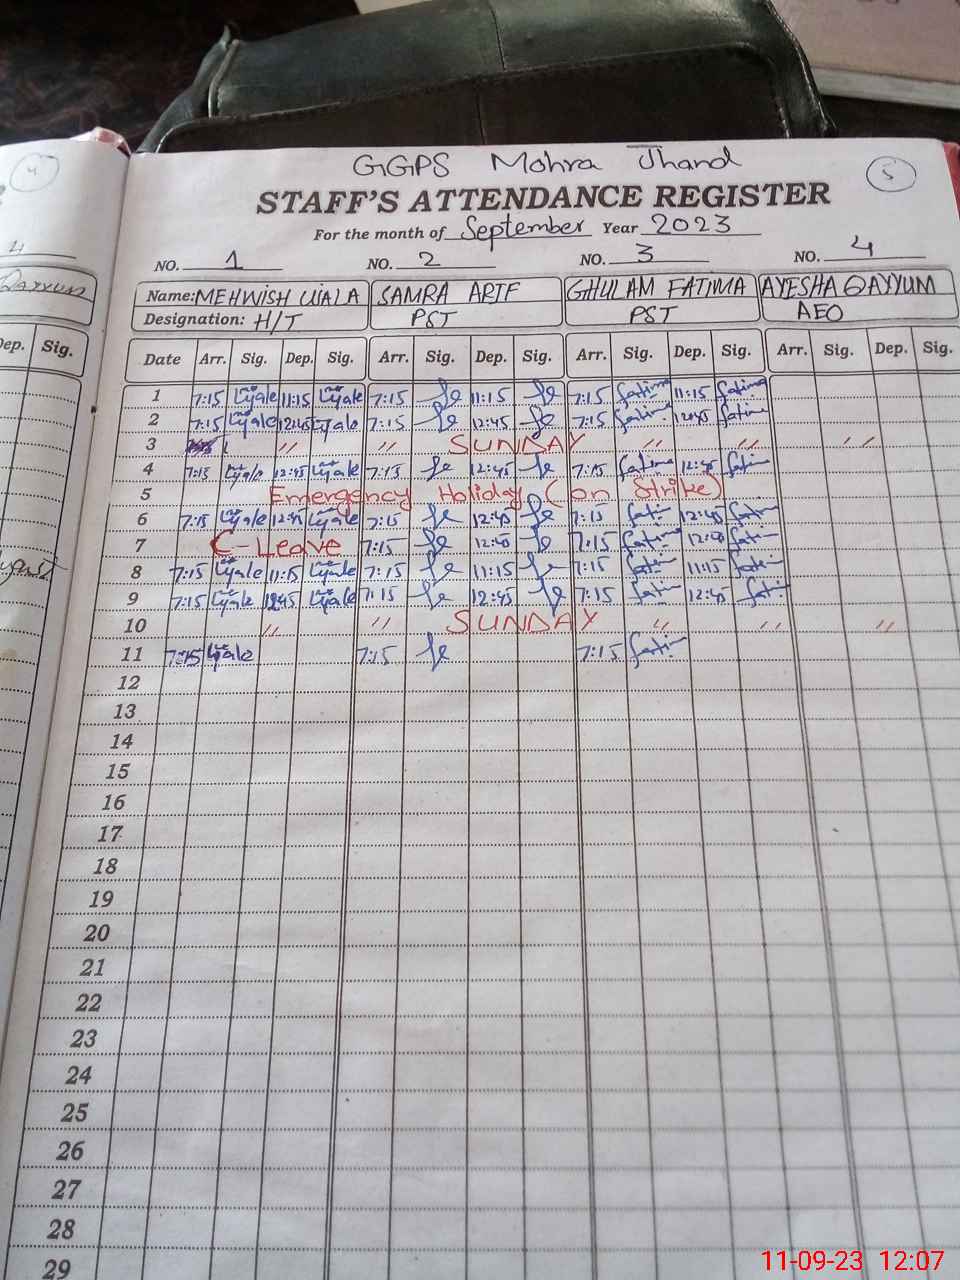 4
5
GGPS Mohra Jhand
STAFF'S ATTENDANCE REGISTER
For the month of September Year 2023
NO. 1 NO. 2 NO. 3 NO. 4
Name: MEHWISH UJALA SAMRA ARIF GHULAM FATIMA AYESHA QAYYUM
Designation: H/T PST PST AEO
QAYYUM
Dep. Sig.
Date Arr. Sig. Dep. Sig. Arr. Sig. Dep. Sig. Arr. Sig. Dep. Sig. Arr. Sig. Dep. Sig.
1 7:15 11:15 7:15 11:15 7:15 Fatima 11:15 Fatima
2 7:15 12:45 7:15 12:45 7:15 Fatima 12:45 Fatima
3 " " SUNDAY " " "
4 7:15 12:45 7:15 12:45 7:15 Fatima 12:45 Fatima
5 Emergency Holiday (on Strike)
6 7:15 12:45 7:15 12:45 7:15 12:45
7 C-Leave 7:15 12:45 7:15 Fatima 12:45
8 7:15 11:15 7:15 11:15 7:15 11:15
9 7:15 12:45 7:15 12:45 7:15 12:45
10 " " SUNDAY " " "
11 7:15 7:15 7:15
12
13
14
15
16
17
18
19
20
21
22
23
24
25
26
27
28
29
11-09-23 12:07